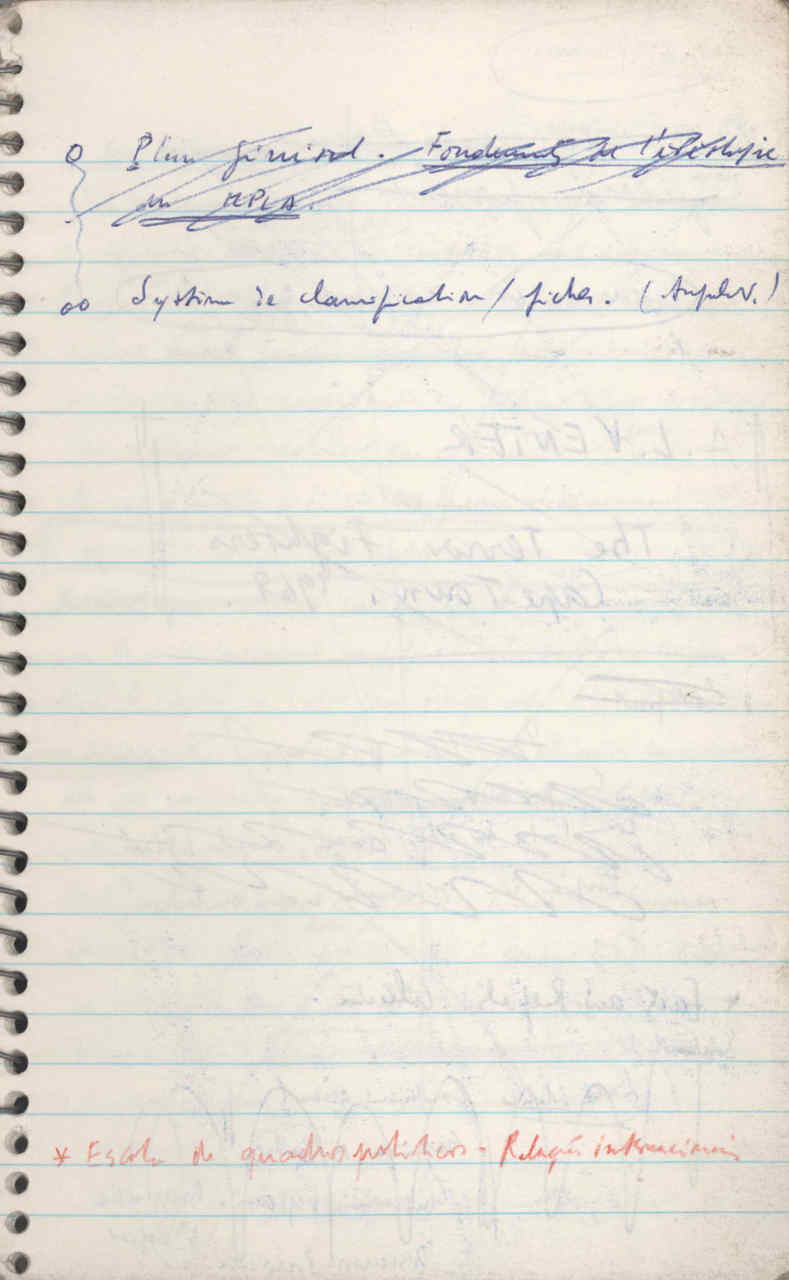 o Plan général. Fondements de l'idéologie
du MPLA.
oo Système de classification / fiches. (Amplier.)
* Escola de quadros políticos - Relações internacionais